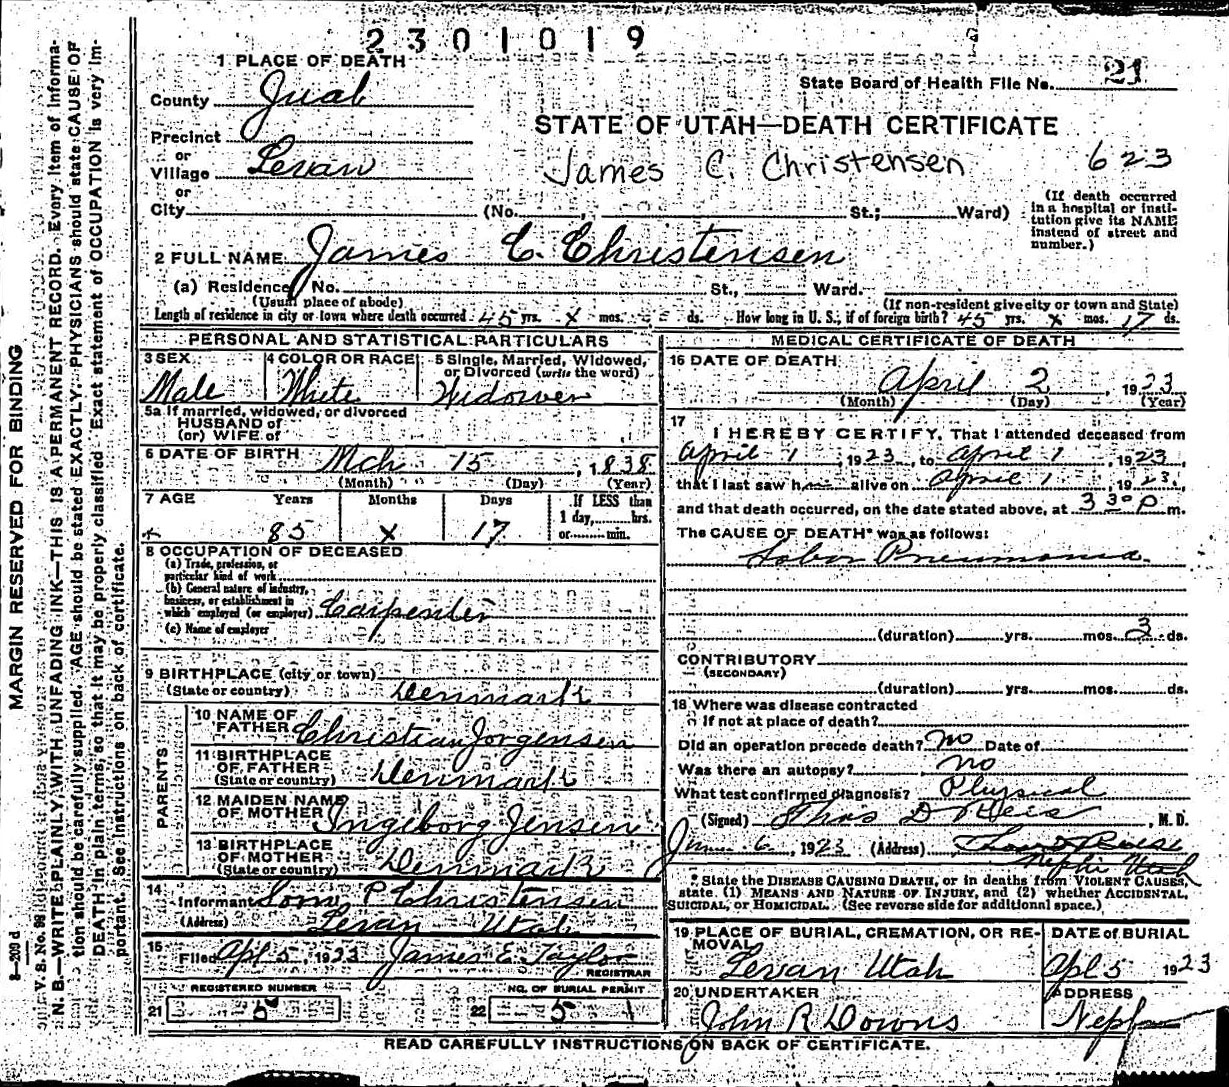 2301019
1 PLACE OF DEATH
State Board of Health File No. 21
County Juab
STATE OF UTAH—DEATH CERTIFICATE
Precinct
or
Village Levan
James C. Christensen 623
or
City (No. St.; Ward)
(If death occurred in a hospital or institution give its NAME instead of street and number.)
2 FULL NAME James C. Christensen
(a) Residence, No. St., Ward.
(Usual place of abode) (If non-resident give city or town and State)
Length of residence in city or town where death occurred 45 yrs. x mos. ds. How long in U. S., if of foreign birth? 45 yrs. x mos. 17 ds.
PERSONAL AND STATISTICAL PARTICULARS
3 SEX
Male
4 COLOR OR RACE
White
5 Single, Married, Widowed,
or Divorced (write the word)
Widower
5a If married, widowed, or divorced
HUSBAND of
(or) WIFE of
6 DATE OF BIRTH Mch 15, 1838
(Month) (Day) (Year)
7 AGE Years Months Days If LESS than
1 day, hrs.
or min.
x 85 x 17
8 OCCUPATION OF DECEASED
(a) Trade, profession, or
particular kind of work
(b) General nature of industry,
business, or establishment in
which employed (or employer) Carpenter
(c) Name of employer
9 BIRTHPLACE (city or town)
(State or country) Denmark
PARENTS
10 NAME OF
FATHER Christian Jorgensen
11 BIRTHPLACE
OF FATHER
(State or country) Denmark
12 MAIDEN NAME
OF MOTHER Ingeborg Jensen
13 BIRTHPLACE
OF MOTHER
(State or country) Denmark
14
Informant P Christensen
(Address) Levan Utah
15
Filed Apl 5, 1923 James E Taylor
REGISTRAR
REGISTERED NUMBER
21 5
NO. OF BURIAL PERMIT
22 5
MEDICAL CERTIFICATE OF DEATH
16 DATE OF DEATH
April 2, 1923
(Month) (Day) (Year)
17
I HEREBY CERTIFY, That I attended deceased from
April 1, 1923, to April 1, 1923,
that I last saw h alive on April 1, 1923,
and that death occurred, on the date stated above, at 3 30 P m.
The CAUSE OF DEATH* was as follows:
Lobar Pneumonia
(duration) yrs. mos. 3 ds.
CONTRIBUTORY
(SECONDARY)
(duration) yrs. mos. ds.
18 Where was disease contracted
if not at place of death?
Did an operation precede death? no Date of
Was there an autopsy? no
What test confirmed diagnosis? Physical
(Signed) Thos D Reis, M. D.
6, 1923 (Address)
Nephi Utah
* State the DISEASE CAUSING DEATH, or in deaths from VIOLENT CAUSES,
state (1) MEANS AND NATURE OF INJURY, and (2) whether ACCIDENTAL,
SUICIDAL, or HOMICIDAL. (See reverse side for additional space.)
19 PLACE OF BURIAL, CREMATION, OR RE-
MOVAL
Levan Utah
DATE of BURIAL
Apl 5 1923
20 UNDERTAKER
John R Downs
ADDRESS
READ CAREFULLY INSTRUCTIONS ON BACK OF CERTIFICATE.
MARGIN RESERVED FOR BINDING
V. S. No. 98
N. B.—WRITE PLAINLY WITH UNFADING INK—THIS IS A PERMANENT RECORD. Every item of informa-
tion should be carefully supplied. AGE should be stated EXACTLY. PHYSICIANS should state CAUSE OF
DEATH in plain terms, so that it may be properly classified. Exact statement of OCCUPATION is very im-
portant. See instructions on back of certificate.